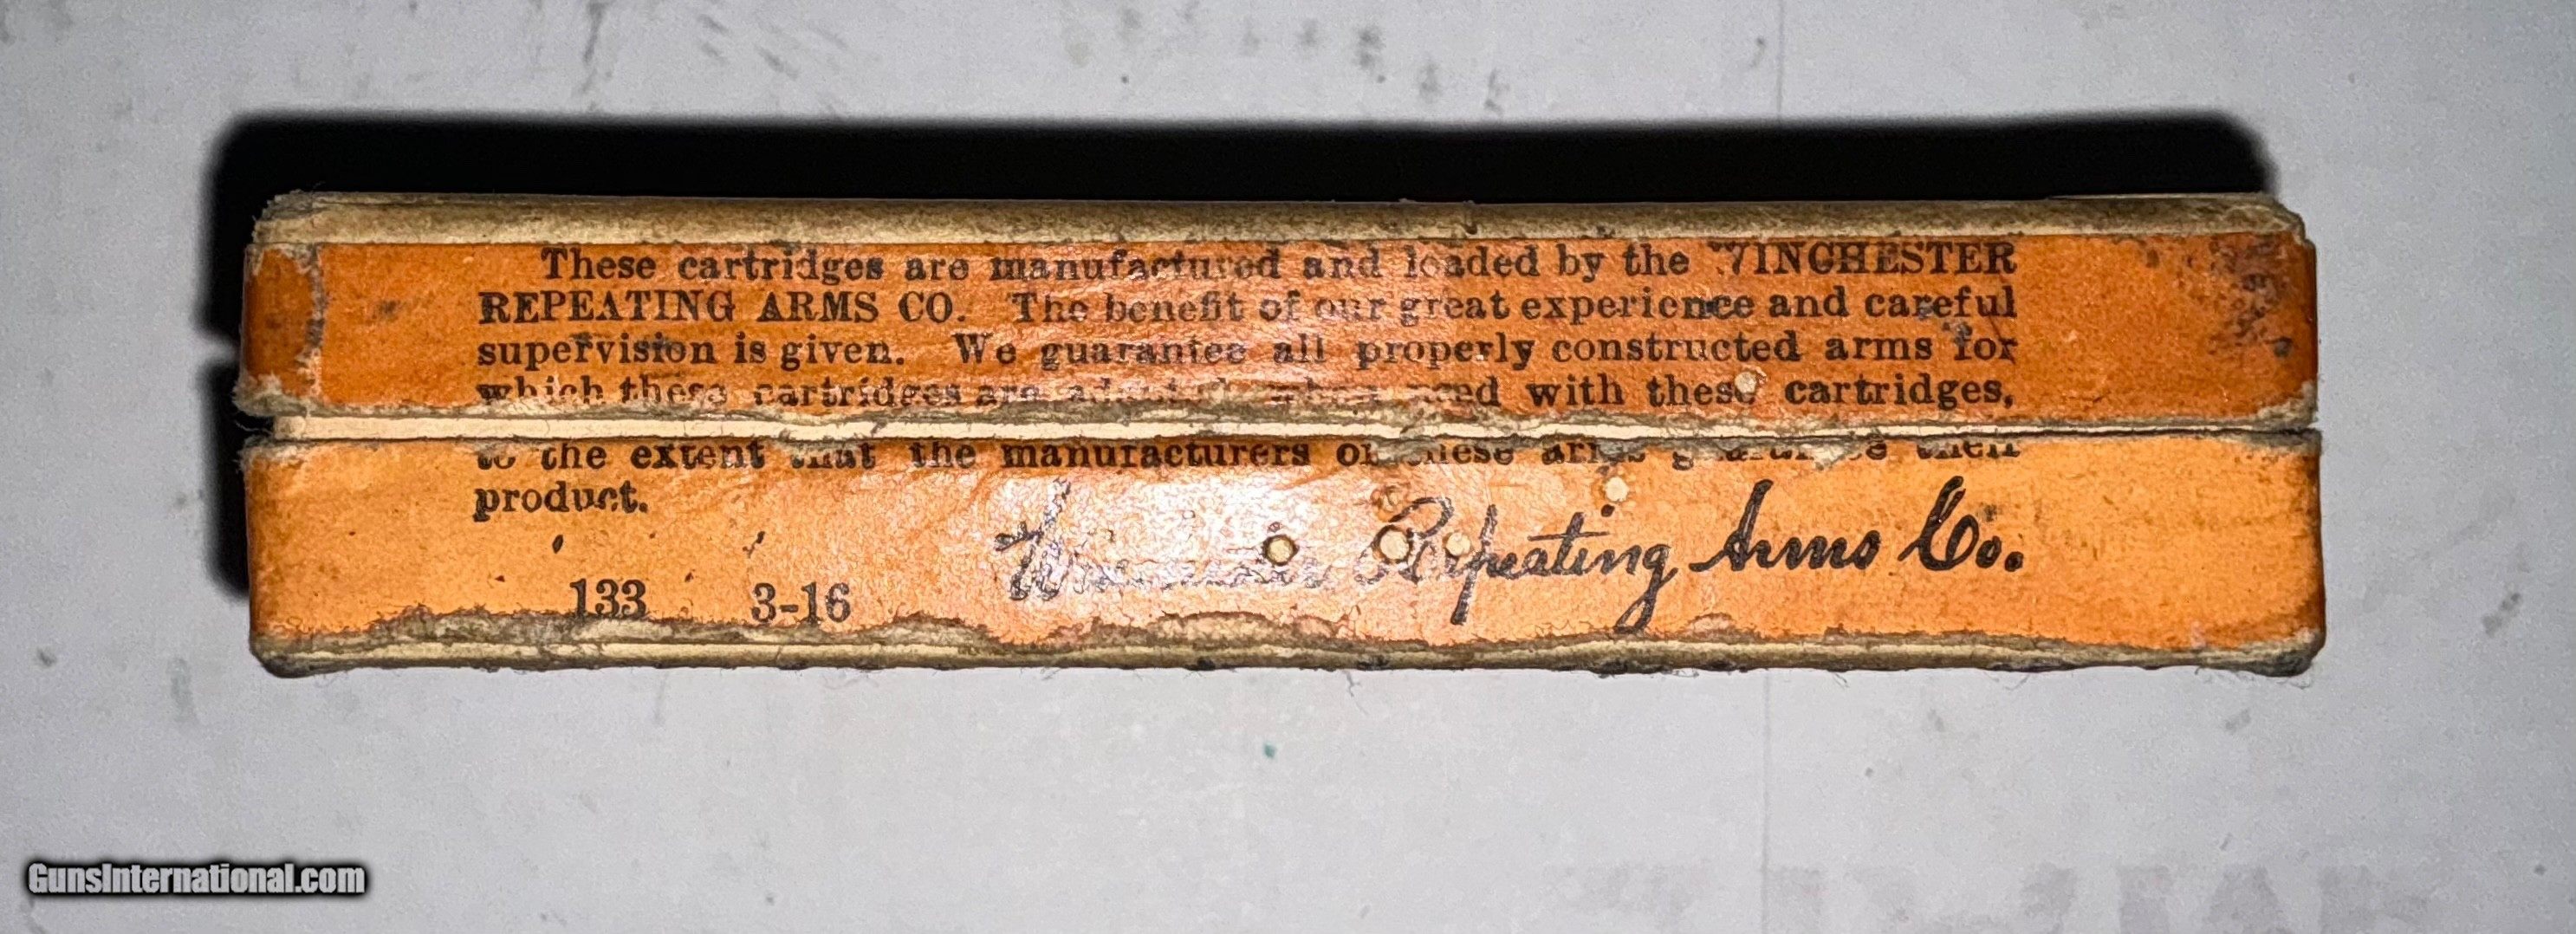 These cartridges are manufactured and loaded by the WINCHESTER
REPEATING ARMS CO. The benefit of our great experience and careful
supervision is given. We guarantee all properly constructed arms for
which these cartridges are adapted, when used with these cartridges,
to the extent that the manufacturers of these arms guarantee their
product.
Repeating Arms Co.
133 3-16
GunsInternational.com